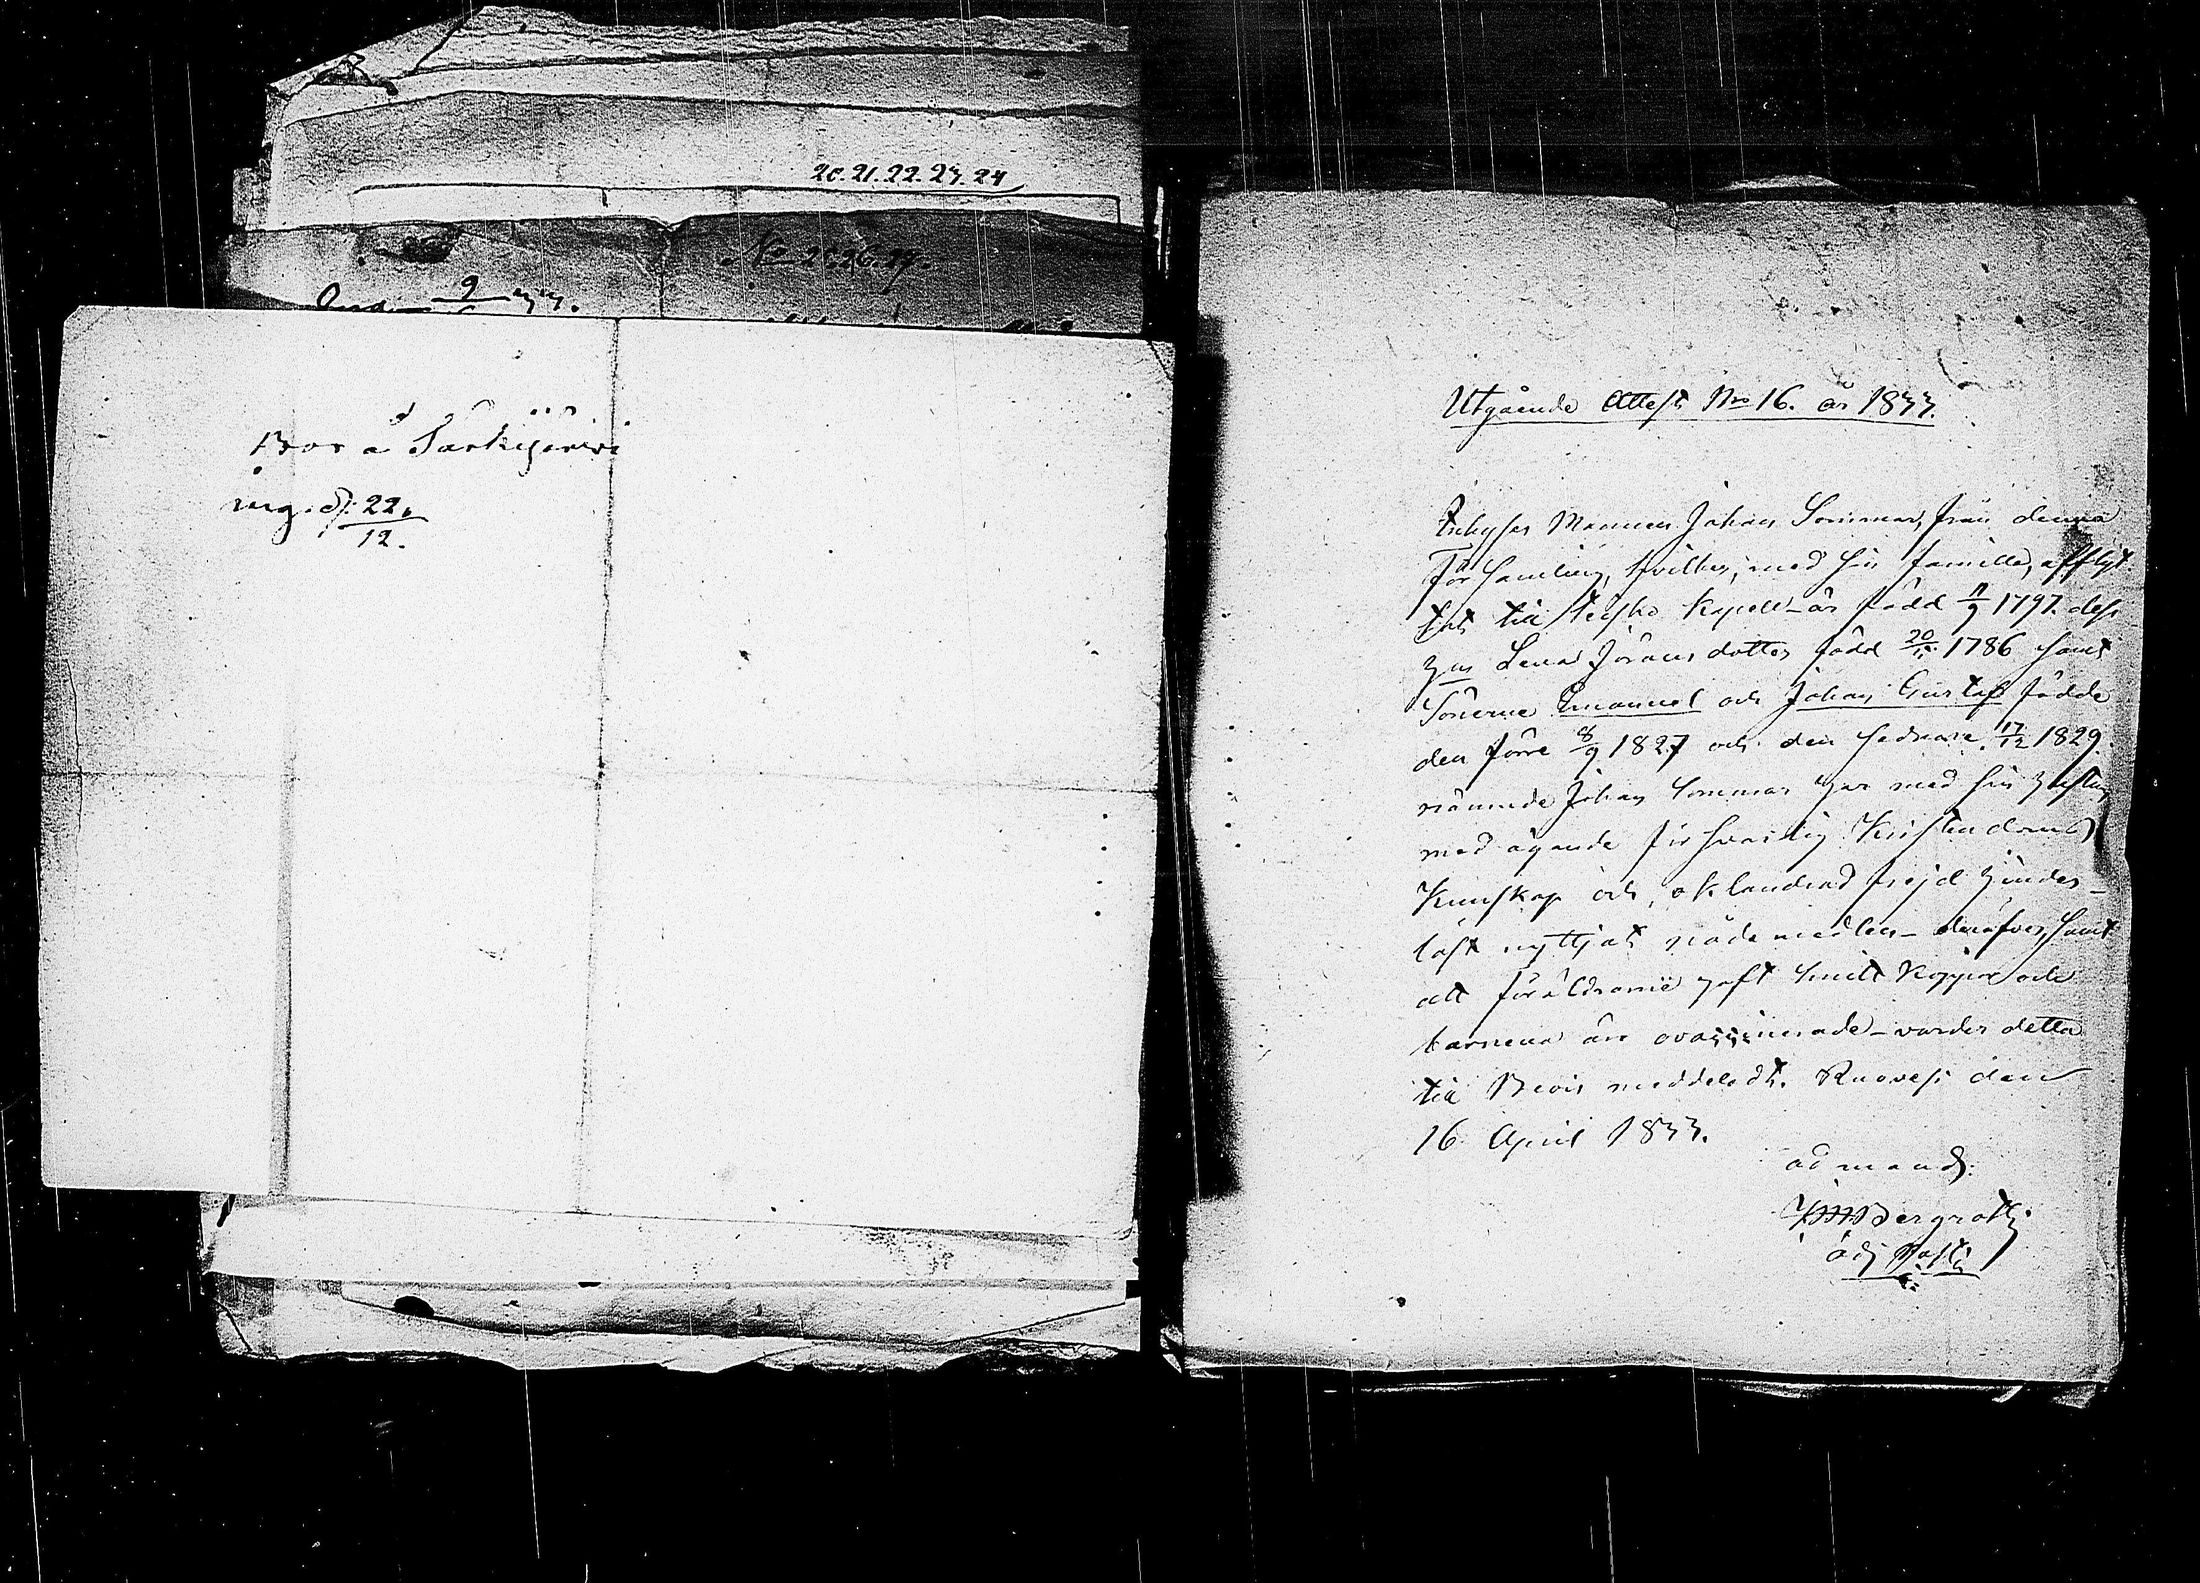 20. 21. 22. 23. 24
No 25. 26. 27.
9
Bor å Särkijärvi
ing. d. 22/12.
Utgående Attest No 16. år 1833.
Inhyses Mannen Johan Sommar, från denna
Församling, hvilken, med sin famille, afflyt-
tat till Teisko Kapell – är född 11/9 1797. dess
hu Lena Jöransdotter född 20/11 1786 samt
Sönerne Emanuel och Johan Gustaf födde
den förre 8/9 1827 och den sednare 17/12 1829.
nämnde Johan Sommar har med sin hustru
med ägande försvarlig Kristendoms
Kunskap och oklandrad frejd hinder-
löst nyttjat nådemedlen – deröfver, samt
att föräldrarne haft smitt koppor och
barnena äro ovaccinerade – varder detta
till Bevis meddeladt. Ruovesi den
16 April 1833.
ad mand:
Bergroth
adj Past: